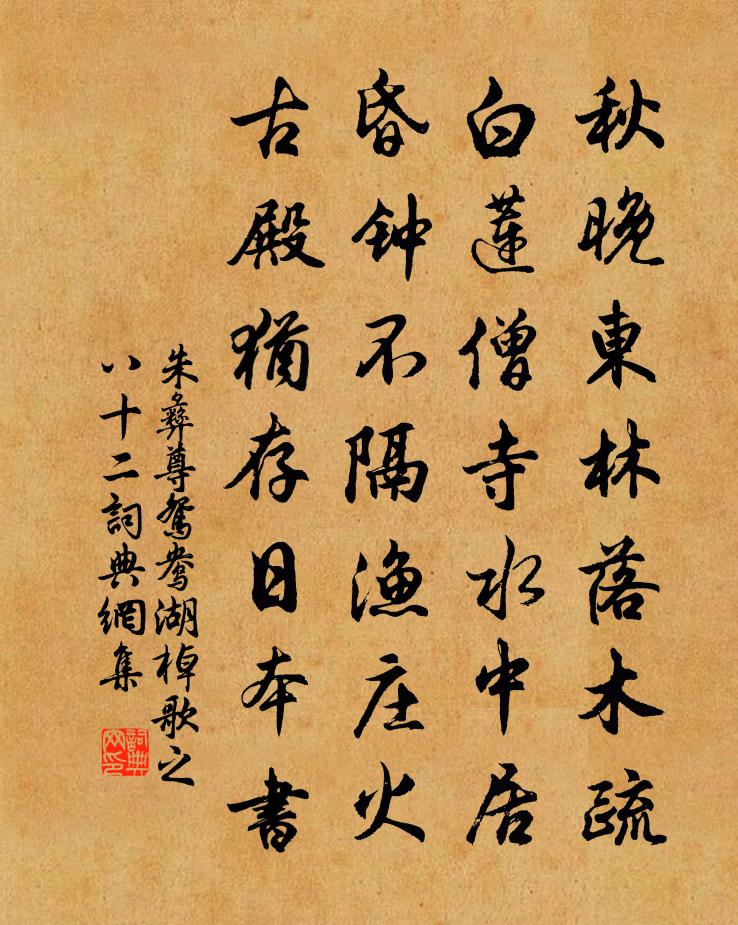 秋晚東林落木疏
白蓮僧寺水中居
昏钟不隔漁庄火
古殿猶存日本書
朱彝尊鴛鴦湖棹歌之
八十二詞典網集